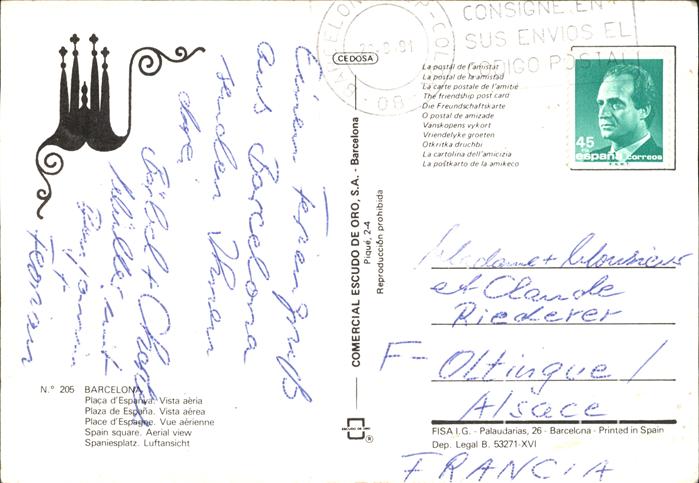 Einen Feriengruß
aus Barcelona
senden Ihnen
die
Bärbel +
Müller mit
Florian
CEDOSA
La postal de l'amistat
La postal de la amistad
La carte postale de l'amitié
The friendship post card
Die Freundschaftskarte
O postal de amizade
Vanskopens vykort
Vriendelyke groeten
Otkritka druchbi
La cartolina dell'amicizia
La poŝtkarto de la amikeco
CONSIGNE EN
SUS ENVIOS EL
CODIGO POSTAL
BARCELONA
08
45
PTA
españa correos
F.N.M.T.
COMERCIAL ESCUDO DE ORO, S.A. - Barcelona
Piqué, 2-4
Reproducción prohibida
Madame + Monsieur
et Claude
Riederer
F- Oltingue /
Alsace
FRANCIA
N.º 205 BARCELONA
Plaça d'Espanya. Vista aèria
Plaza de España. Vista aérea
Place d'Espagne. Vue aérienne
Spain square. Aerial view
Spaniesplatz. Luftansicht
ESCUDO DE ORO
®
FISA I.G. - Palaudarias, 26 - Barcelona - Printed in Spain
Dep. Legal B. 53271-XVI